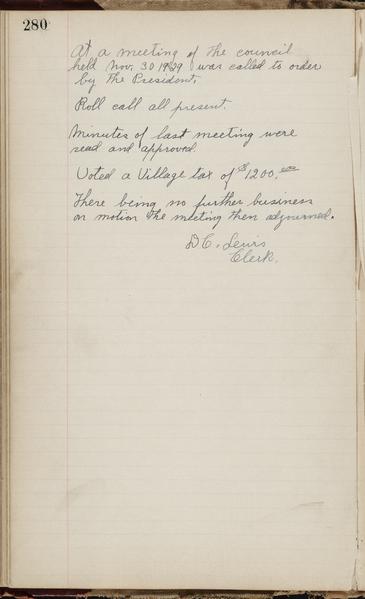 280
At a meeting of the council
held Nov. 30 1929 was called to order
by the President.
Roll call all present.
Minutes of last meeting were
read and approved
Voted a Village tax of $1200.
There being no further business
on motion the meeting then adjourned.
D C. Lewis
Clerk.